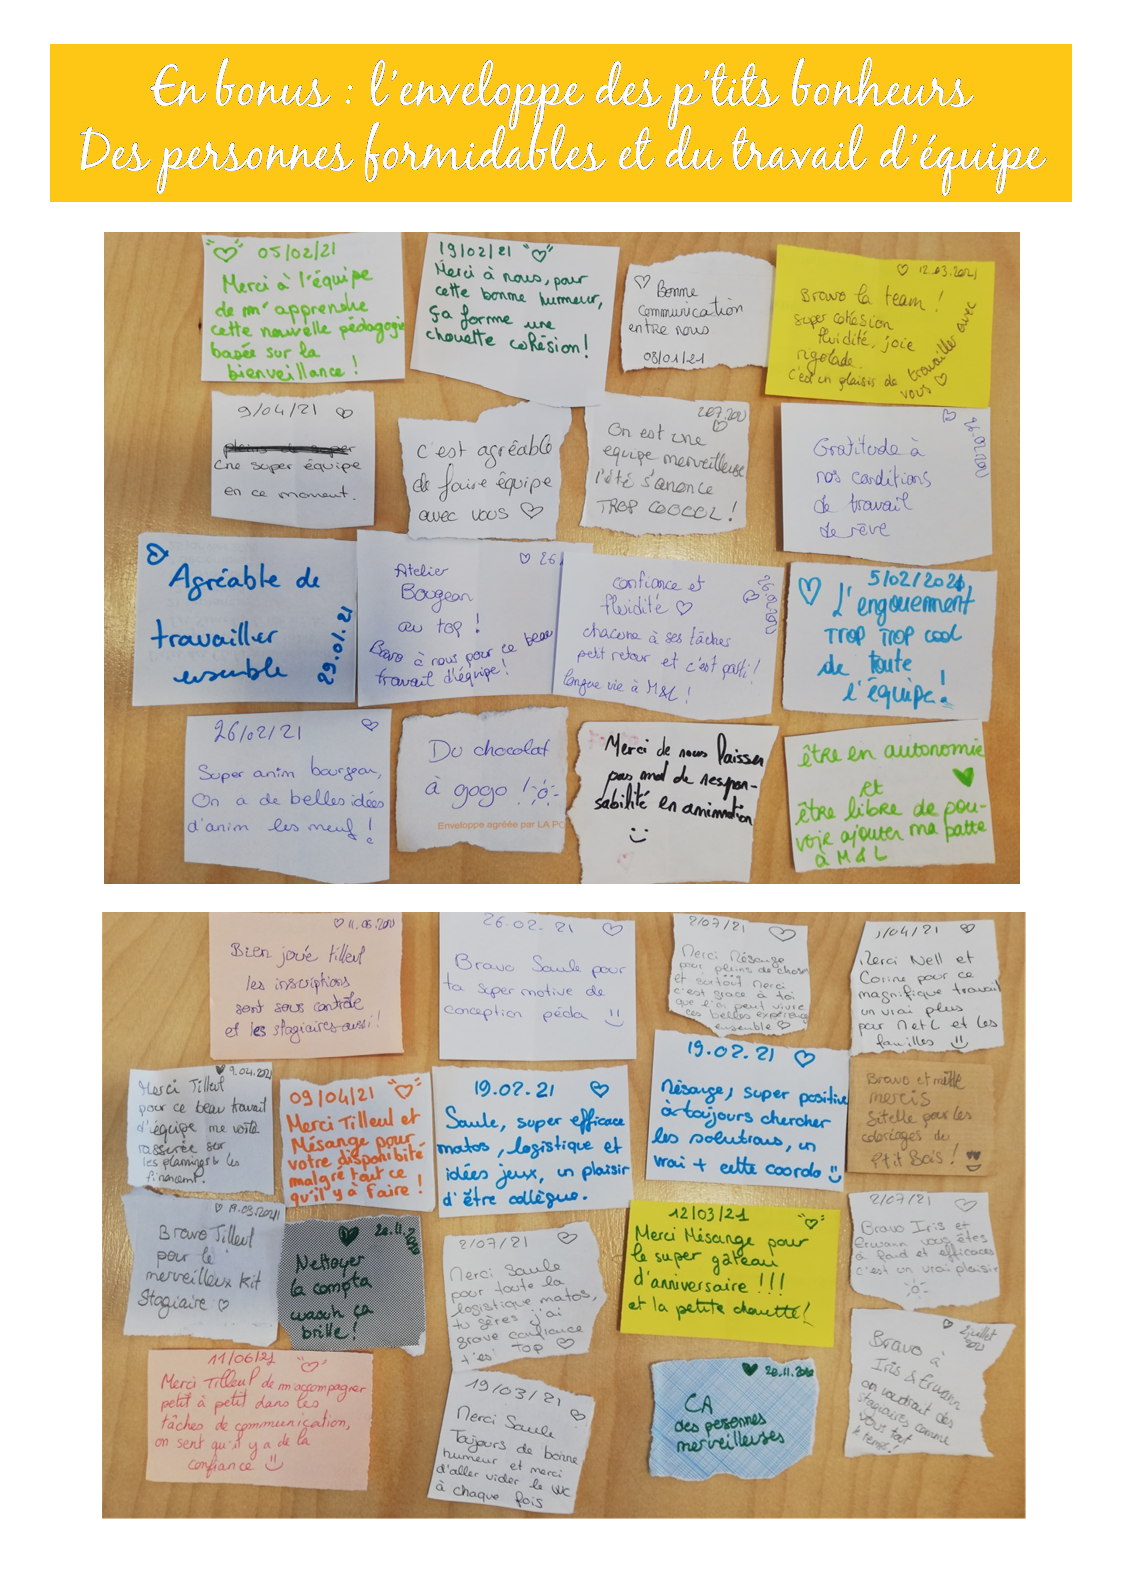 En bonus : l'enveloppe des p'tits bonheurs
Des personnes formidables et du travail d'équipe
05/02/21
Merci à l'équipe
de m'apprendre
cette nouvelle pédagogie
basée sur la
bienveillance !
19/02/21
Merci à nous, pour
cette bonne humeur,
ça forme une
chouette cohésion !
Bonne
communication
entre nous
08/01/21
12.03.2021
Bravo la team !
super cohésion
fluidité, joie
rigolade.
c'est un plaisir de travailler avec
vous
9/04/21
Une super équipe
en ce moment.
c'est agréable
de faire équipe
avec vous
On est une
équipe merveilleuse
l'été s'annonce
TROP COOOOL !
26.02.2021
Gratitude à
nos conditions
de travail
de rêve
Agréable de
travailler
ensemble
29.01.21
26
Atelier
Bougeon
au top !
Bravo à nous pour ce beau
travail d'équipe !
26.02.2021
confiance et
fluidité
chacune à ses tâches
petit retour et c'est parti !
longue vie à M&L !
5/02/2021
L'engouement
TROP TROP cool
de toute
l'équipe !
26/02/21
Super anim bourgeon,
On a de belles idées
d'anim les meuf !
Du chocolat
à gogo !
Enveloppe agréée par LA PO
Merci de nous laisser
pas mal de respon-
sabilité en animation
être en autonomie
et
être libre de pou-
voir ajouter ma patte
à M&L
11.06.2021
Bien joué Tilleul
les inscriptions
sont sous contrôle
et les stagiaires aussi !
26.02.21
Bravo Saule pour
ta super motive de
conception péda
2/07/21
Merci Mésange
pour pleins de choses
et surtout merci
c'est grace à toi
que l'on peut vivre
ces belles expériences
ensemble
/04/21
Merci Nell et
Corine pour ce
magnifique travail
un vrai plus
pour M et L et les
familles
9.04.2021
Merci Tilleul
pour ce beau travail
d'équipe me voilà
rassurée sur
les plannings & les
financent.
09/04/21
Merci Tilleul et
Mésange pour
votre disponibilité
malgré tout ce
qu'il y à faire !
19.02.21
Saule, super efficace
matos, logistique et
idées jeux, un plaisir
d'être collègue.
19.02.21
Mésange, super positive
à toujours chercher
les solutions, un
vrai + cette coordo
Bravo et mille
mercis
Sitelle pour les
coloriages de
P'tit Bois !
19.03.2021
Bravo Tilleul
pour le
merveilleux kit
Stagiaire
20.11.2020
Nettoyer
la compta
waouh ça
brille !
2/07/21
Merci Saule
pour toute la
logistique matos,
tu gères j'ai
grave confiance
t'es TOP
12/03/21
Merci Mésange pour
le super gâteau
d'anniversaire !!!
et la petite chouette !
2/07/21
Bravo Iris et
Erwann vous êtes
à fond et efficaces
c'est un vrai plaisir
11/06/21
Merci Tilleul de m'accompagner
petit à petit dans les
tâches de communication,
on sent qu'il y a de la
confiance
19/03/21
Merci Saule
Toujours de bonne
humeur et merci
d'aller vider le WC
à chaque fois
20.11.2020
CA
des personnes
merveilleuses
2 juillet
2021
Bravo à
Iris & Erwann
on voudrait des
stagiaires comme
vous tout
le temps !